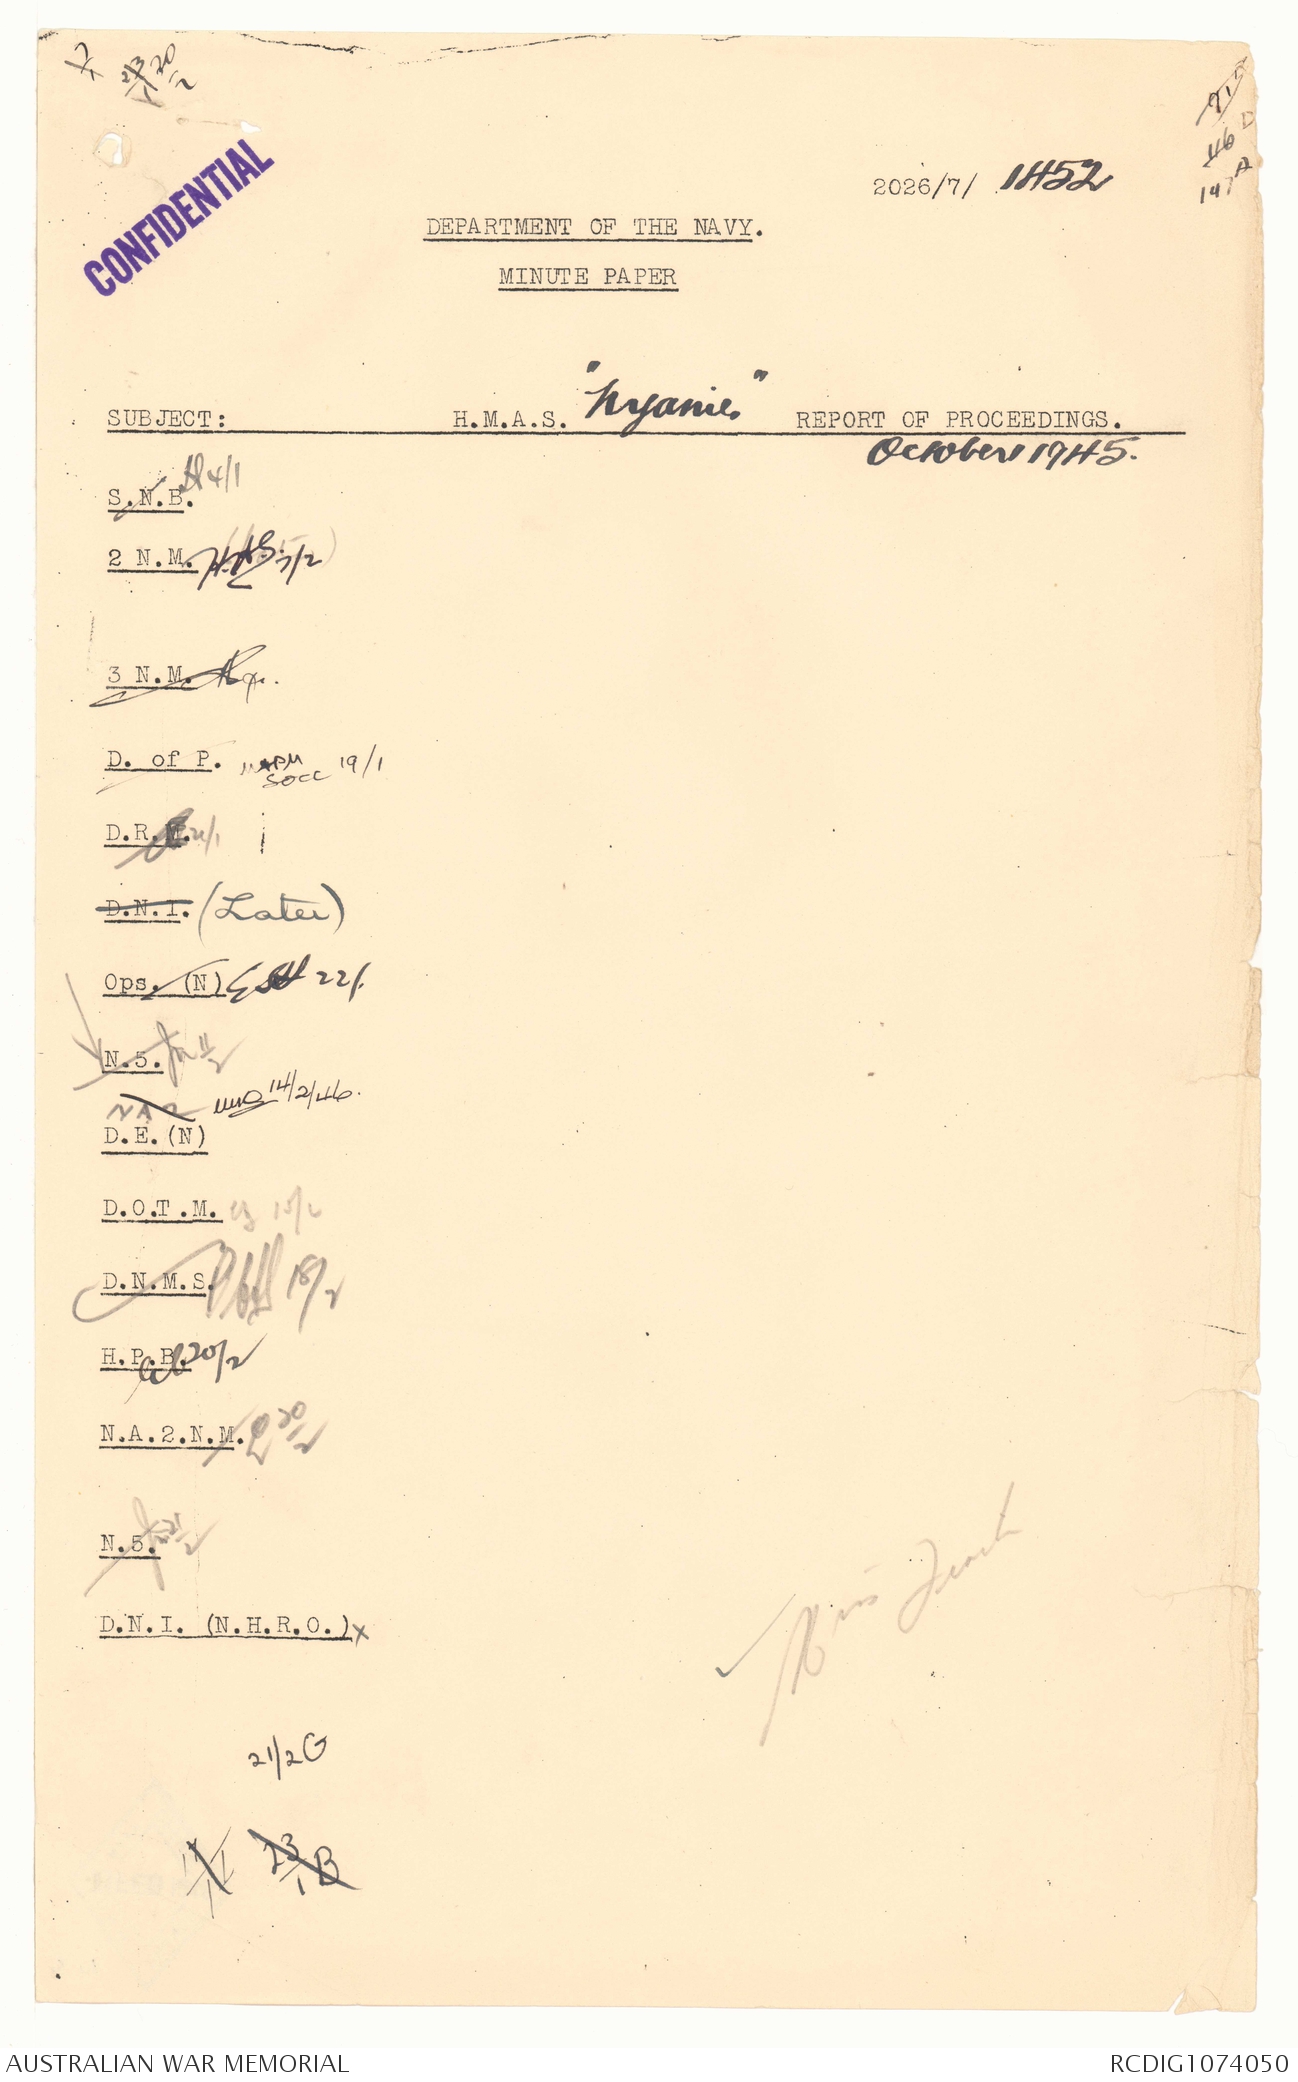 23/1 20/2
CONFIDENTIAL
46
147A
2026/7/ 1452
DEPARTMENT OF THE NAVY.
MINUTE PAPER
SUBJECT: H.M.A.S. "Kyanie" REPORT OF PROCEEDINGS.
October 1945.
S.N.B. 4/1
2 N.M. 7/2
3 N.M.
D. of P. SOCC 19/1
D.R.M. 21/1
D.N.I. (Later)
Ops. (N) 22/1
N.5. 11/2
NA2 14/2/46.
D.E.(N)
D.O.T.M. 15/2
D.N.M.S. 18/2
H.P.B. 20/2
N.A.2.N.M. 20/2
N.5. 21/2
D.N.I. (N.H.R.O.)x
21/2 G
23/1 B
AUSTRALIAN WAR MEMORIAL RCDIG1074050